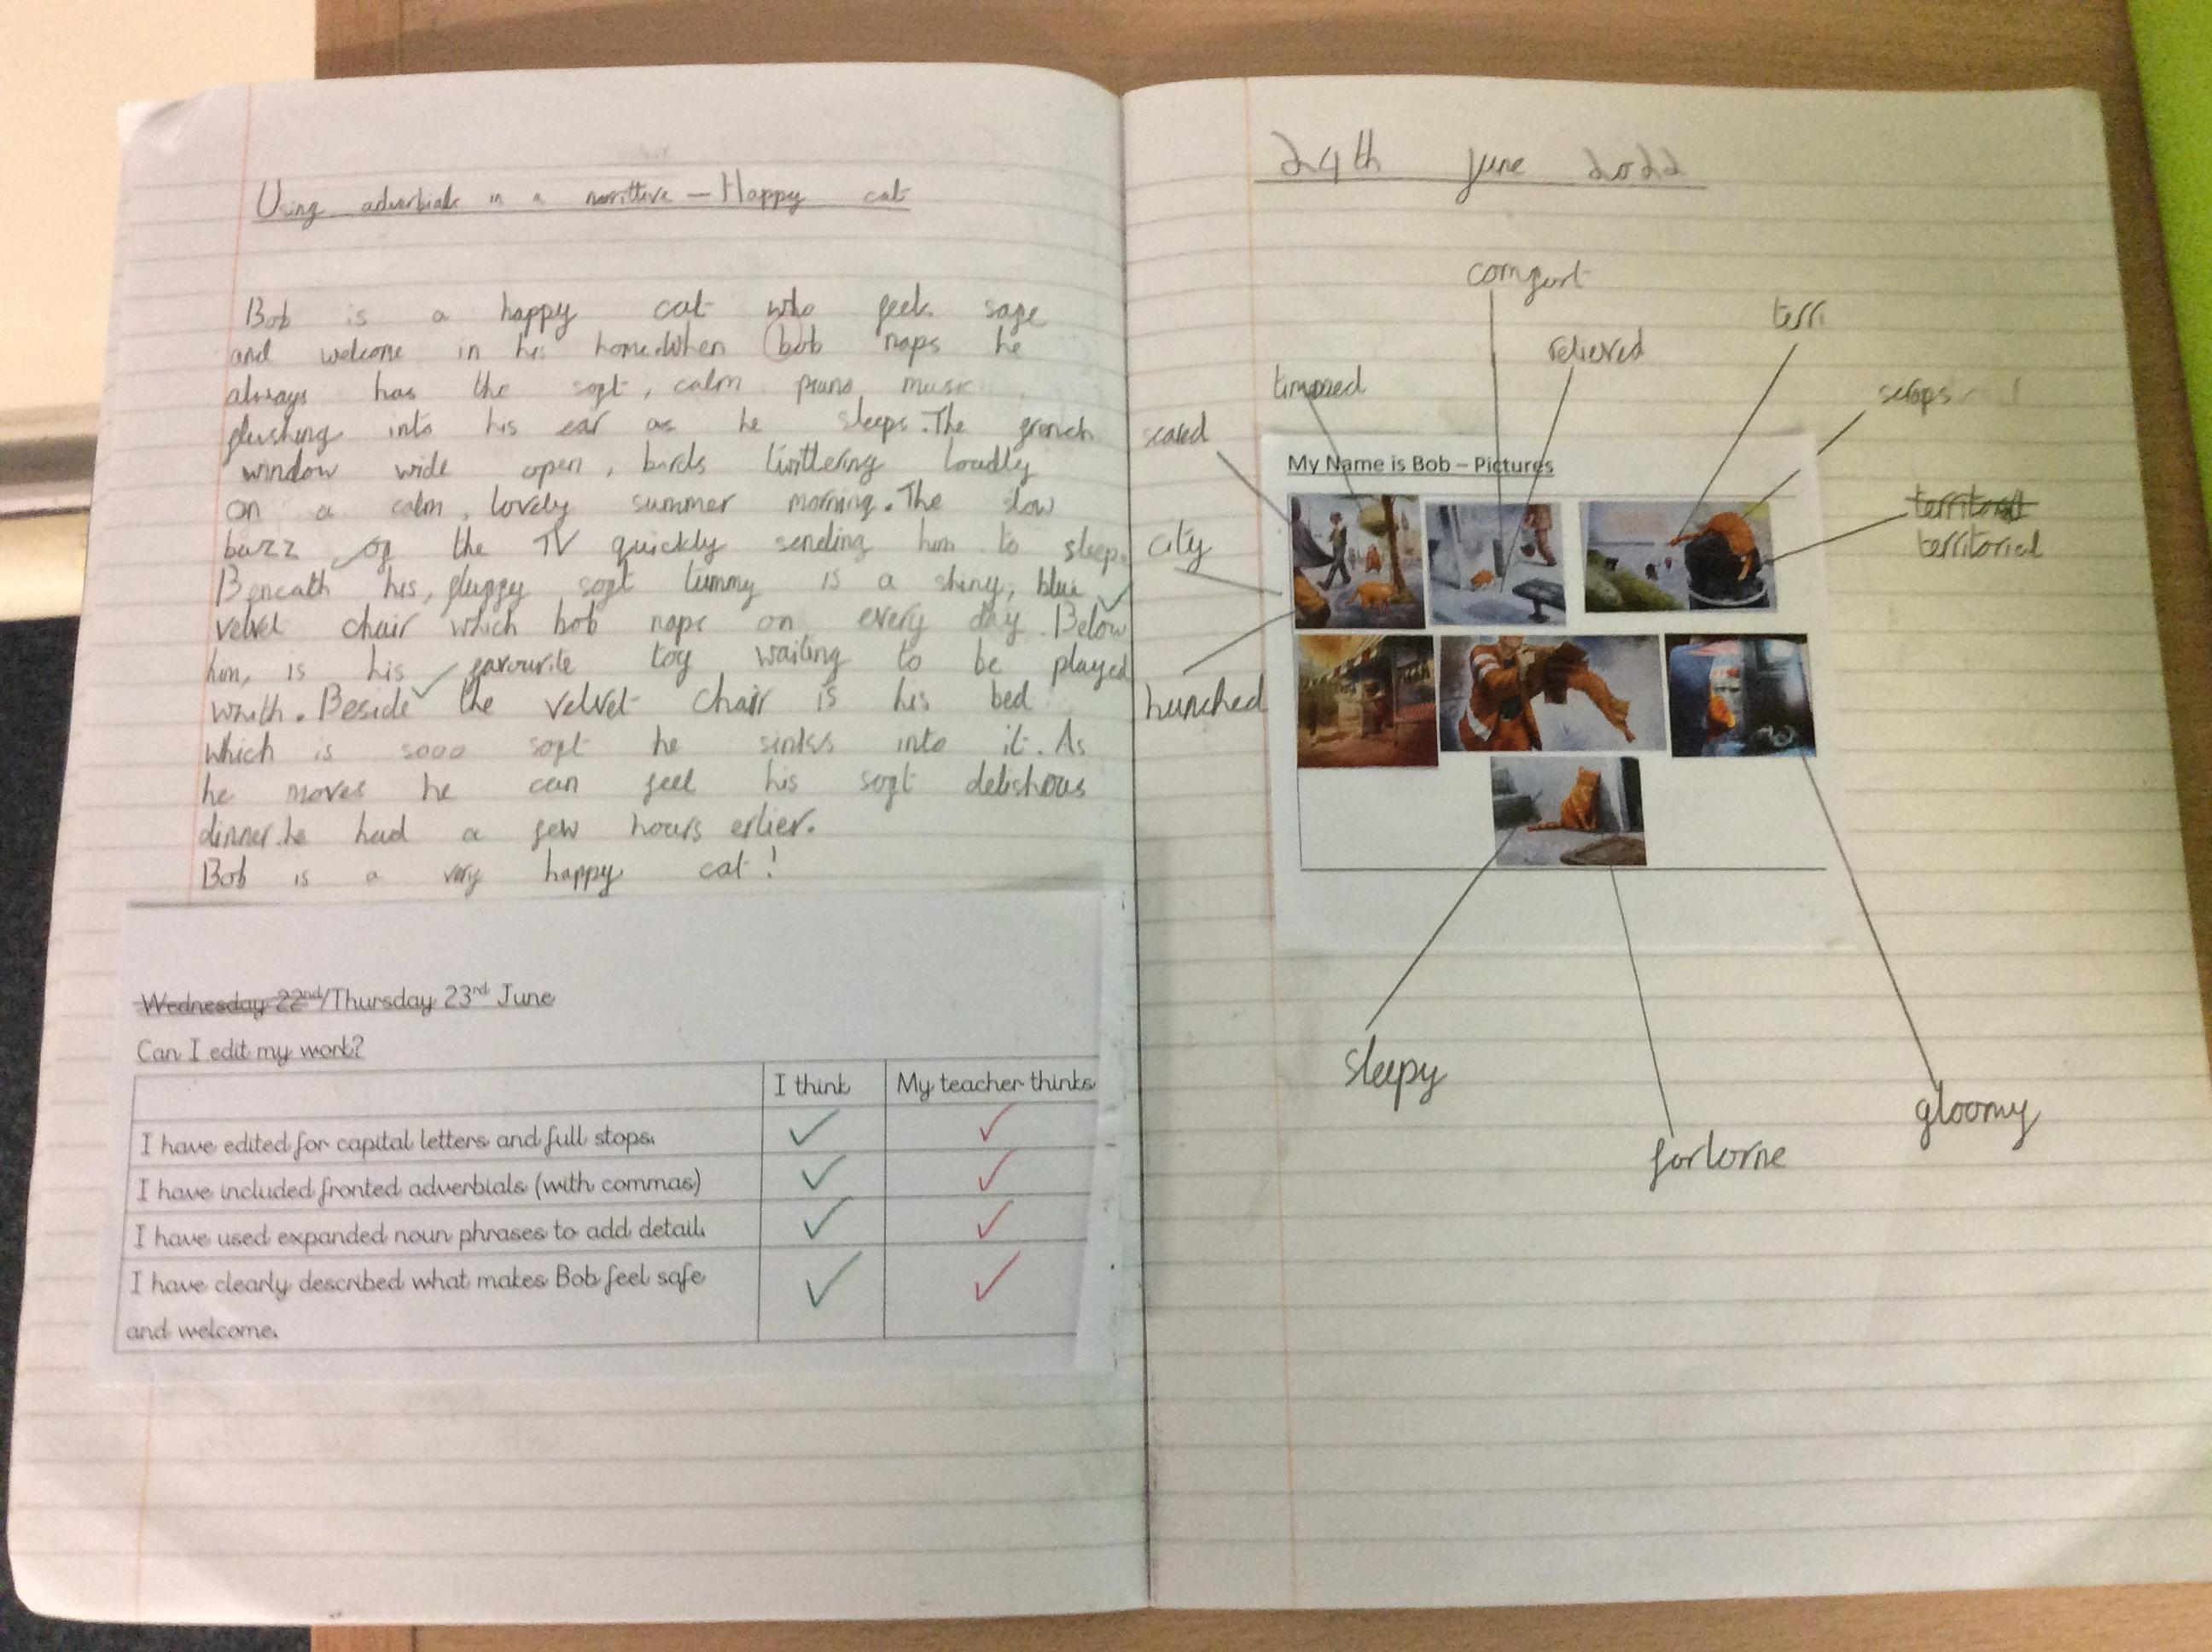 Using adverbials in a narrittive - Happy cat
Bob is a happy cat who feels safe
and welcome in his home.When bob naps he
always has the soft, calm piano music
flushing into his ear as he sleeps.The french
window wide open, birds twittering loudly
on a calm, lovely summer morning.The slow
buzz of the TV quickly sending him to sleep.
Beneath his, fluffy soft tummy is a shiny, blue
velvet chair which bob naps on every day.Below
him, is his favourite toy waiting to be played
whith.Beside the velvet chair is his bed
which is sooo soft he sinks into it.As
he moves he can feel his soft delishous
dinner.he had a few hours erlier.
Bob is a very happy cat!
Wednesday 22nd/Thursday 23rd June
Can I edit my work?
I think My teacher thinks
I have edited for capital letters and full stops.
I have included fronted adverbials (with commas)
I have used expanded noun phrases to add detail.
I have clearly described what makes Bob feel safe
and welcome.
24th june 2022
comfort
terri
relieved
scraps
scared
My Name is Bob – Pictures
territorial
city
hunched
sleepy
gloomy
forlorne